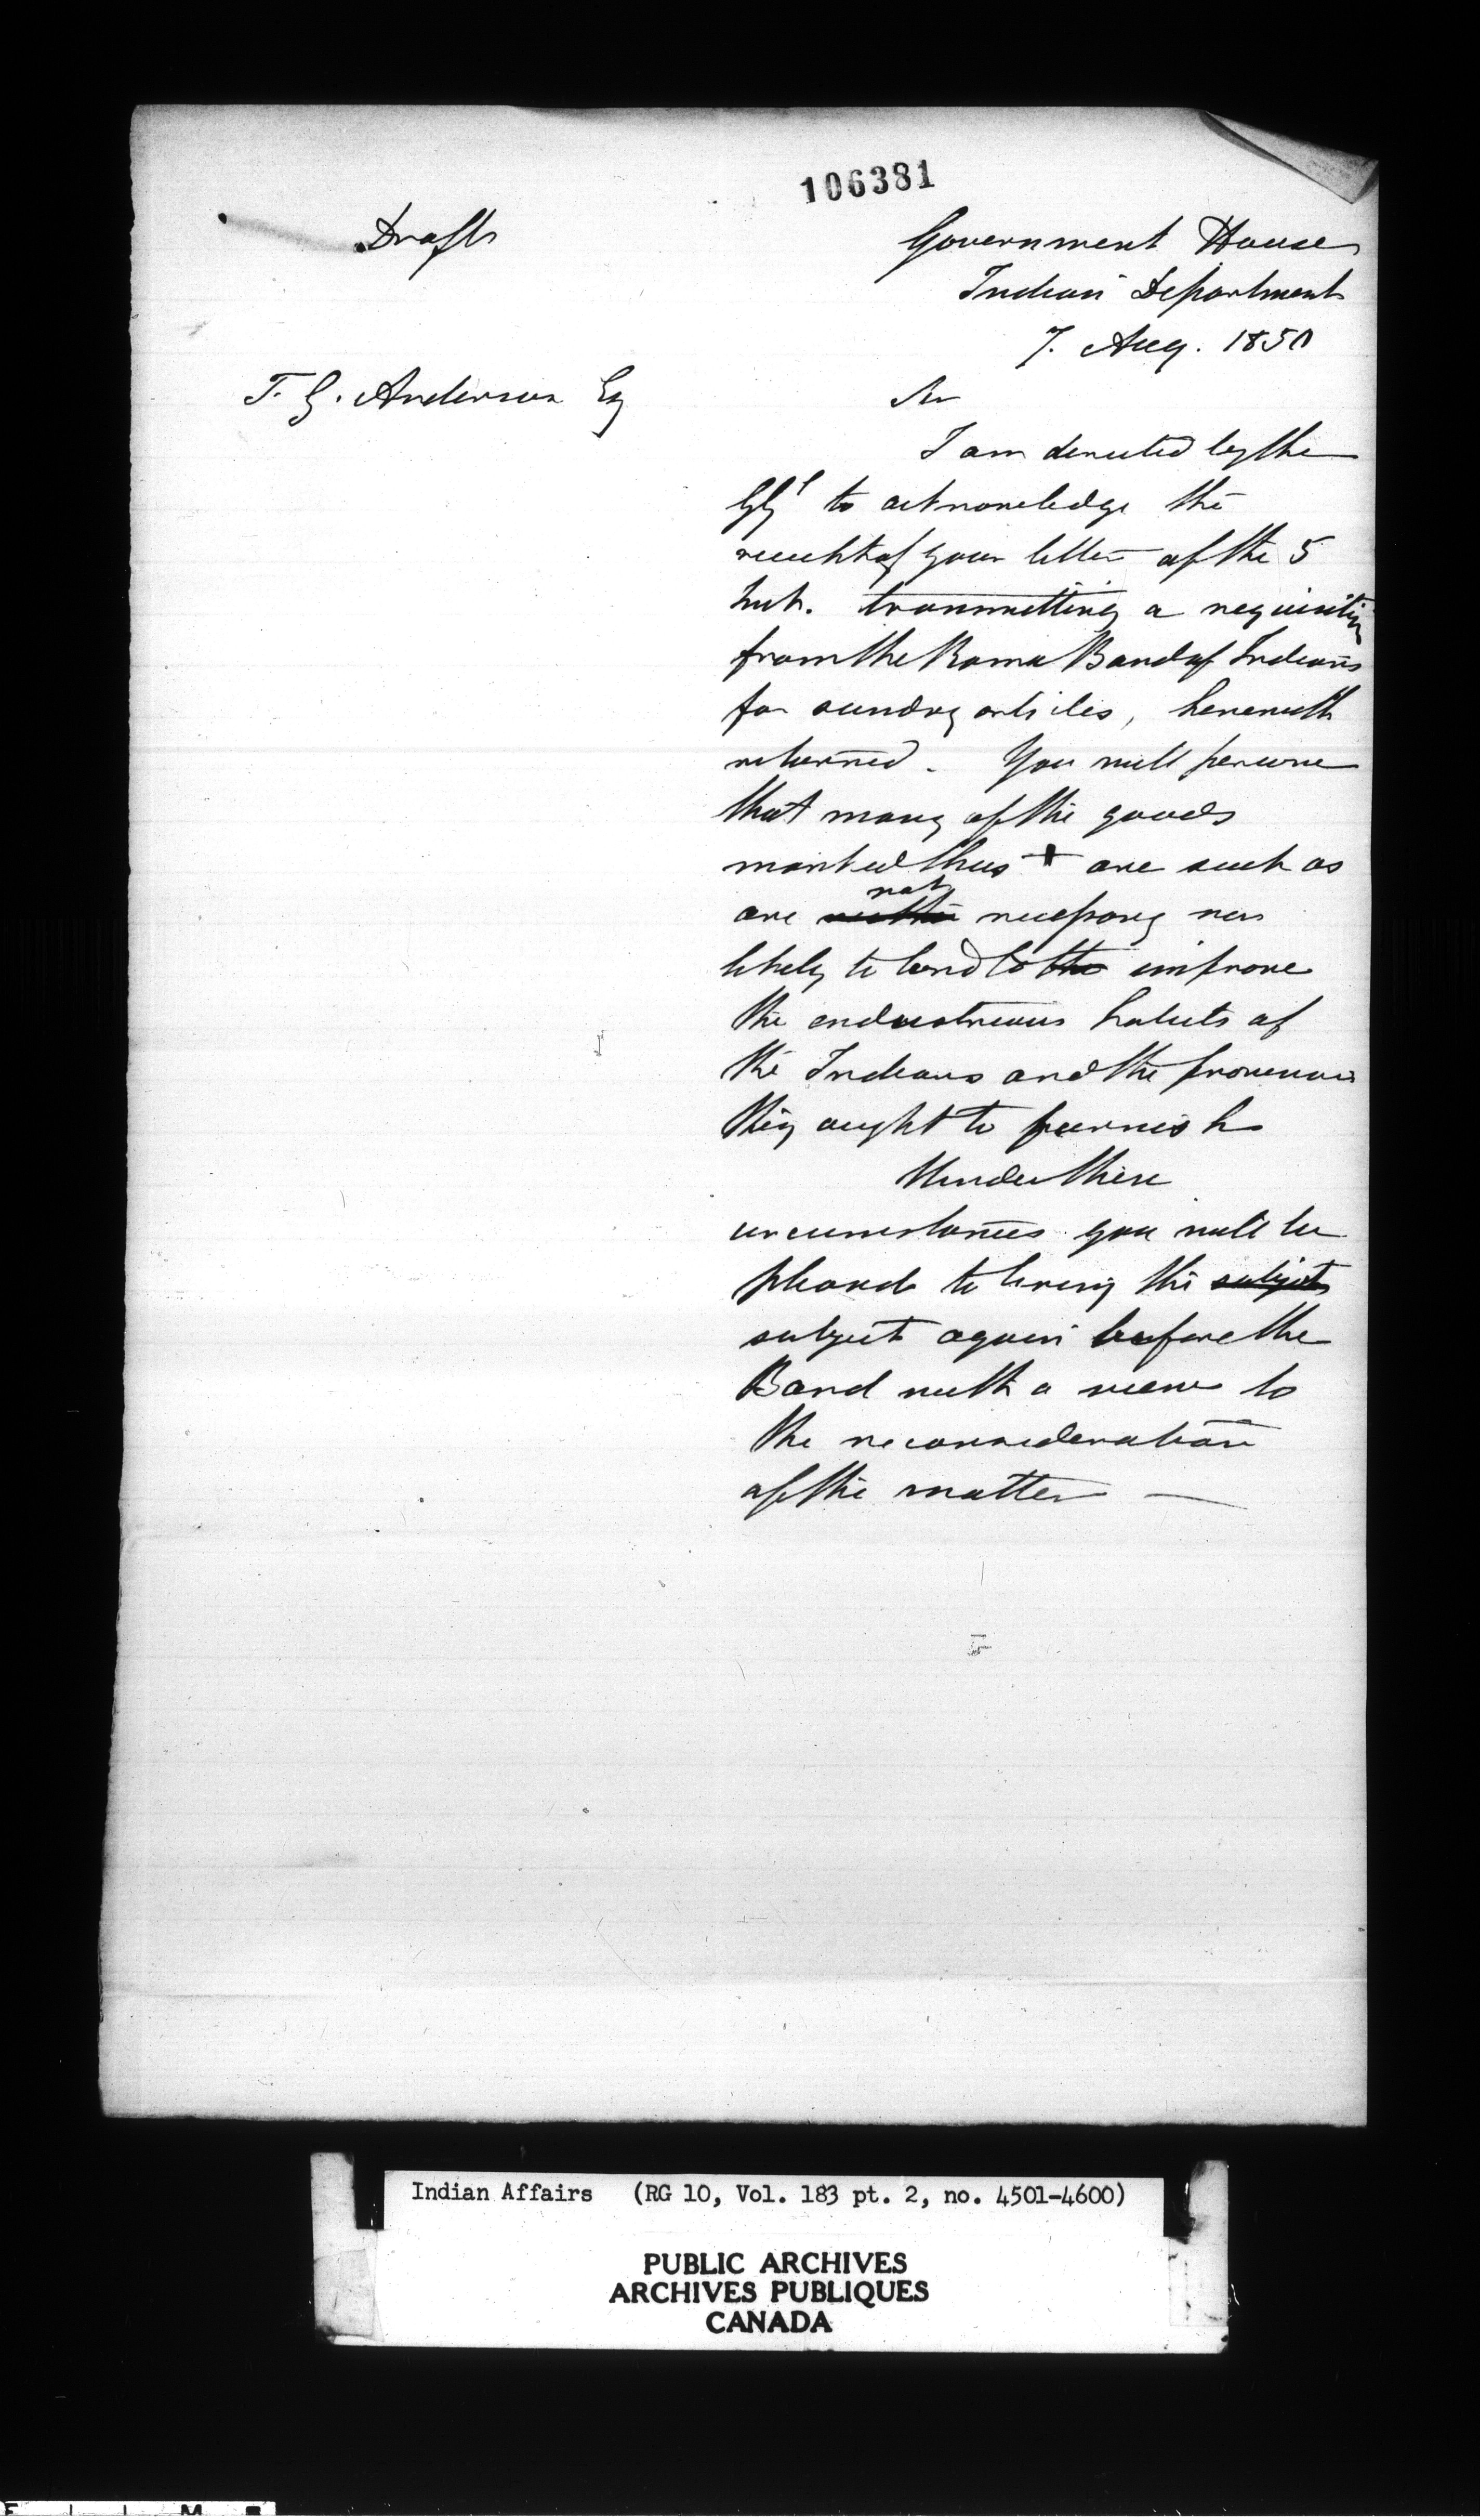 106381
Draft
Government House
Indian Department
7. Aug. 1850
T. G. Anderson Esq
Sir
I am directed by the
GGl to acknowledge the
receipt of your letter of the 5
Inst. transmitting a requisition
from the Rama Band of Indians
for sundry articles, herewith
returned. You will perceive
that many of the goods
marked thus + are such as
not
are neither necessary nor
likely to tend to the improve
the industrious habits of
the Indians and the
they ought to furnish
Under these
circumstances you will be
pleased to bring the subject
subject again before the
Band with a view to
the reconsideration
of the matter —
Indian Affairs (RG 10, Vol. 183 pt. 2, no. 4501-4600)
PUBLIC ARCHIVES
ARCHIVES PUBLIQUES
CANADA